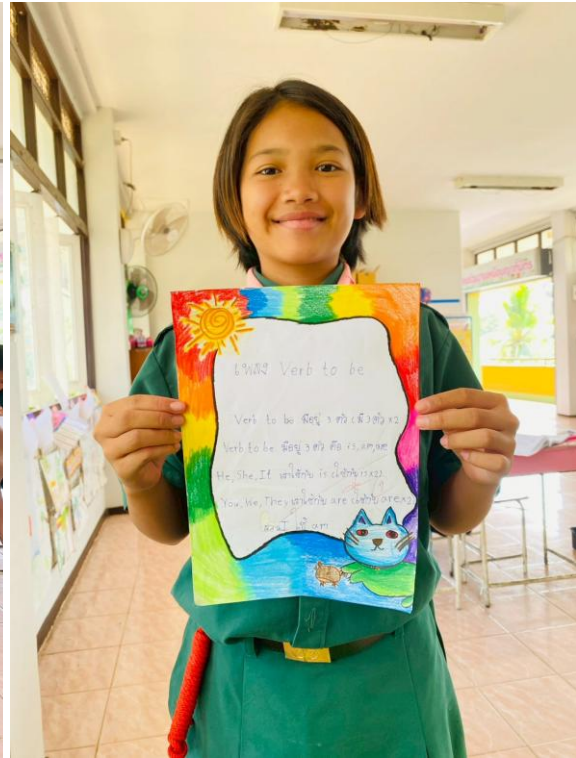 เพลง Verb to be
Verb to be มีอยู่ 3 ตัว (มี) ตัว x2
Verb to be มีอยู่ 3 ตัว คือ is, am, are
He, She, It เราใช้กับ is ใช้กับ is x2
You, We, They เราใช้กับ are ใช้กับ are x2
I ใช้ am